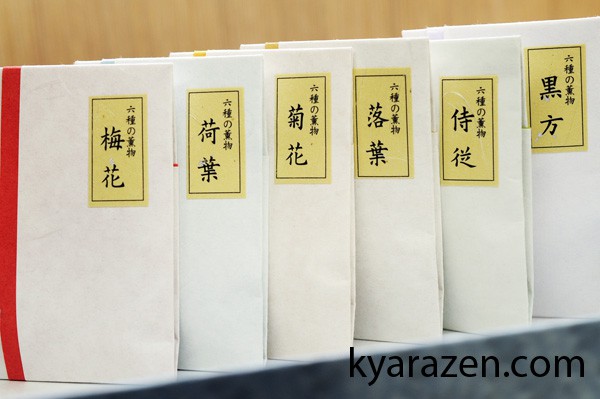 六種の薫物
梅花
六種の薫物
荷葉
六種の薫物
菊花
六種の薫物
落葉
六種の薫物
侍従
六種の薫物
黒方
kyarazen.com